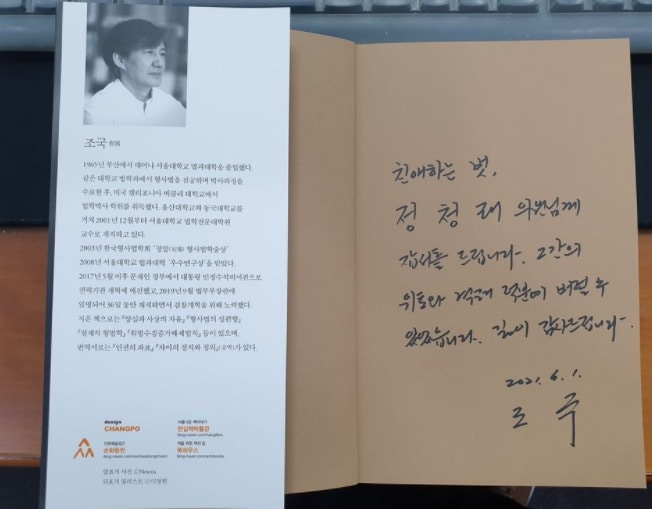 조국 曺國
1965년 부산에서 태어나 서울대학교 법과대학을 졸업했다.
같은 대학교 법학과에서 형사법을 전공하며 박사과정을
수료한 후, 미국 캘리포니아 버클리 대학교에서
법학박사 학위를 취득했다. 울산대학교와 동국대학교를
거쳐 2001년 12월부터 서울대학교 법학전문대학원
교수로 재직하고 있다.
2003년 한국형사법학회 '정암(定菴) 형사법학술상'
2008년 서울대학교 법과대학 '우수연구상'을 받았다.
2017년 5월 이후 문재인 정부에서 대통령 민정수석비서관으로
권력기관 개혁에 매진했고, 2019년 9월 법무부장관에
임명되어 36일 동안 재직하면서 검찰개혁을 위해 노력했다.
지은 책으로는 『양심과 사상의 자유』 『형사법의 성편향』
『절제의 형법학』 『위법수집증거배제법칙』 등이 있으며,
번역서로는 『인권의 좌표』 『차이의 정치와 정의』(공역)가 있다.
design
CHANGPO
아름다운 책이야기
한길책박물관
인문예술공간
순화동천
책을 위한 책의 집
북하우스
앞표지 사진 ⓒNewsis
뒤표지 일러스트 ⓒ이정헌
친애하는 벗,
정청래 의원님께
감사를 드립니다. 그간의
위로와 격려 덕분에 버틸 수
있었습니다. 깊이 감사드립니다.
2021. 6. 1.
조 국